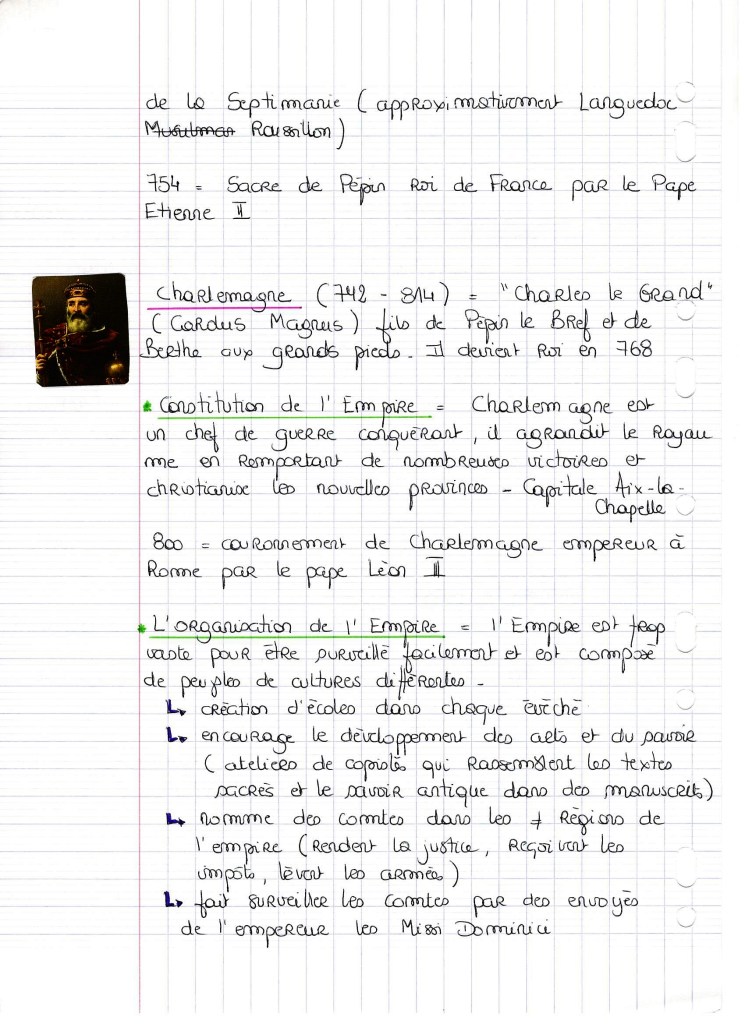 de la Septimanie (approximativement Languedoc
Musulman Roussillon)
754 = Sacre de Pépin Roi de France par le Pape
Etienne II
Charlemagne (742 - 814) = "Charles le Grand"
(Cardus Magnus) fils de Pépin le Bref et de
Berthe aux grands pieds. Il devient Roi en 768
* Constitution de l'Empire = Charlemagne est
un chef de guerre conquérant, il agrandit le Royau
me en Remportant de nombreuses victoires et
christianise les nouvelles provinces - Capitale Aix-la-
Chapelle
800 = couronnement de Charlemagne empereur à
Rome par le pape Léon III
* L'organisation de l'Empire = l'Empire est trop
vaste pour être surveillé facilement et est composé
de peuples de cultures différentes -
↳ création d'écoles dans chaque évêché
↳ encourage le développement des arts et du savoir
(ateliers de copistes qui Rassemblent les textes
sacrés et le savoir antique dans des manuscrits)
↳ nomme des comtes dans les ≠ Régions de
l'empire (Rendent la justice, Reçoivent les
impôts, lèvent les armées)
↳ fait surveiller les comtes par des envoyés
de l'empereur les Missi Dominici